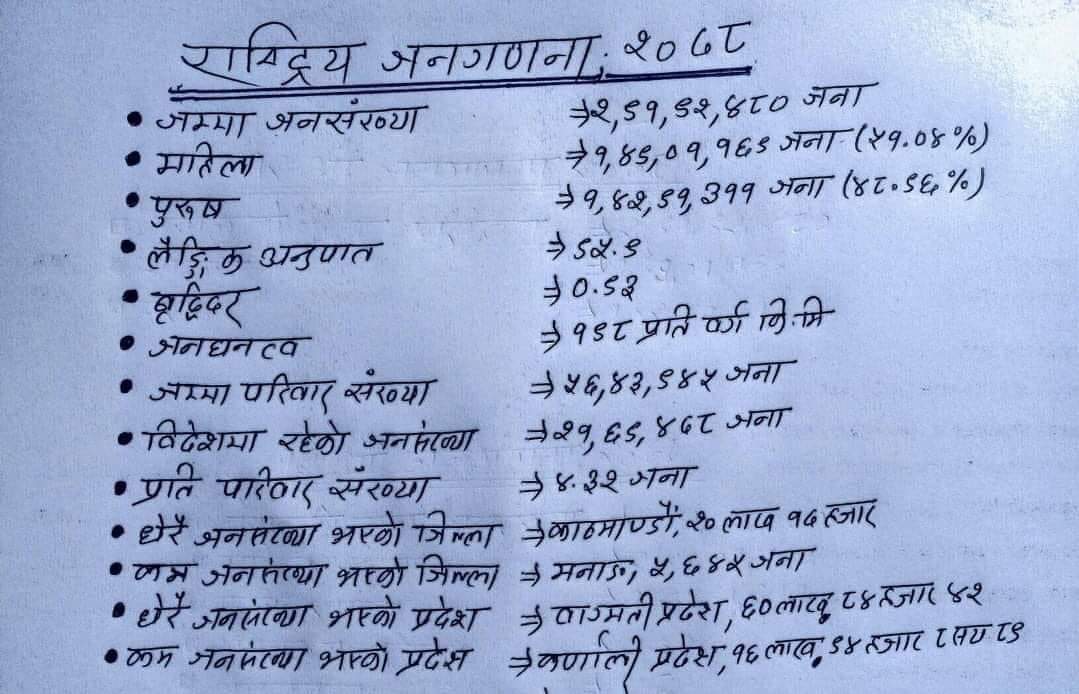 राष्ट्रिय जनगणना, २०७८
• जम्मा जनसंख्या ⇒ २,९१,९२,४८० जना
• माहिला ⇒ १,४९,०१,१६९ जना (५१.०४%)
• पुरुष ⇒ १,४२,९१,३११ जना (४८.९६%)
• लैङ्गिक अनुपात ⇒ ९५.९
• बृद्धिदर ⇒ ०.९३
• जनघनत्व ⇒ १९८ प्रति वर्ग कि.मि
• जम्मा परिवार संख्या ⇒ ५६,४३,९४५ जना
• विदेशमा रहेको जनसंख्या ⇒ २१,६९,४७८ जना
• प्रति परिवार संख्या ⇒ ४.३२ जना
• धेरै जनसंख्या भएको जिल्ला ⇒ काठमाण्डौं, २० लाख १७ हजार
• कम जनसंख्या भएको जिल्ला ⇒ मनाङ, ५,६४५ जना
• धेरै जनसंख्या भएको प्रदेश ⇒ वाग्मती प्रदेश, ६० लाख ८४ हजार ४२
• कम जनसंख्या भएको प्रदेश ⇒ कर्णाली प्रदेश, १६ लाख, ९४ हजार ८ सय ८९